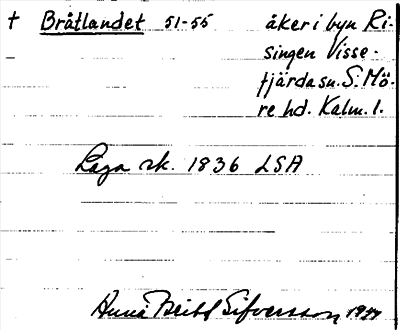 † Bråtlandet 51-55 åker i byn Ri-
singen Visse-
fjärda sn. S. Mö-
re hd. Kalm. l.
Laga sk. 1836 LSA
Anna Britt Sifversson